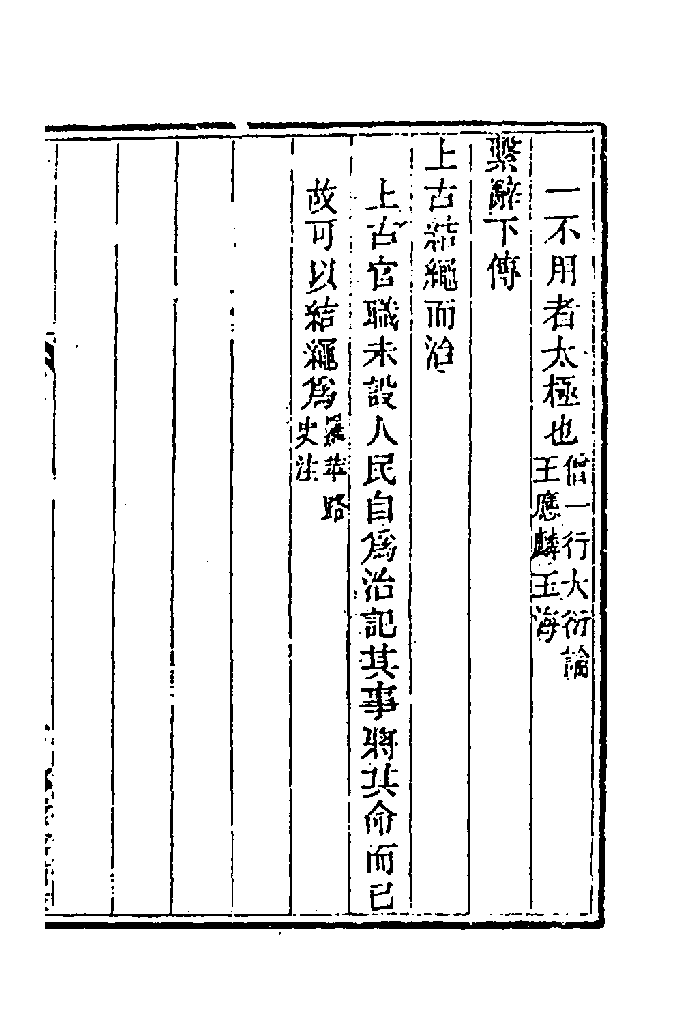 一不用者太極也僧一行大衍論王應麟玉海
繫辭下傳
上古結繩而治
上古官職未設人民自爲治記其事將其命而已
故可以結繩爲羅苹路史注